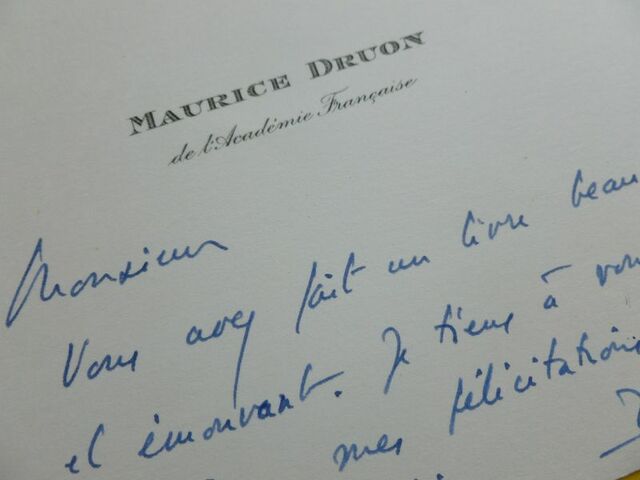 MAURICE DRUON
de l'Académie Française
Monsieur
Vous avez fait un livre beau
et émouvant. Je tiens à vou
mes félicitations